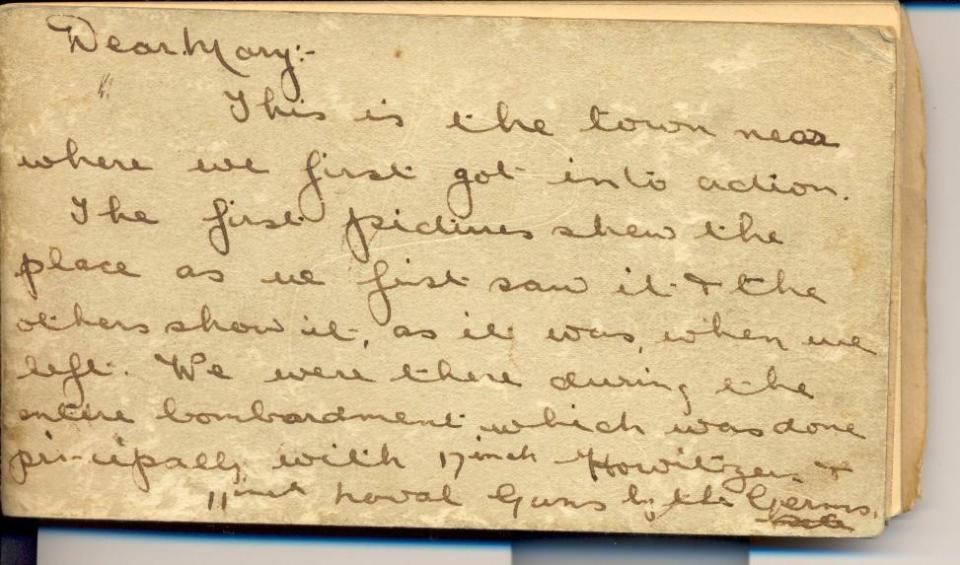 Dear Mary:-
This is the town near
where we first got into action.
The first pictures shew the
place as we first saw it & the
others show it, as it was, when we
left. We were there during the
entire bombardment which was done
principally with 17 inch Howitzers &
11 inch naval Guns by the Germs.